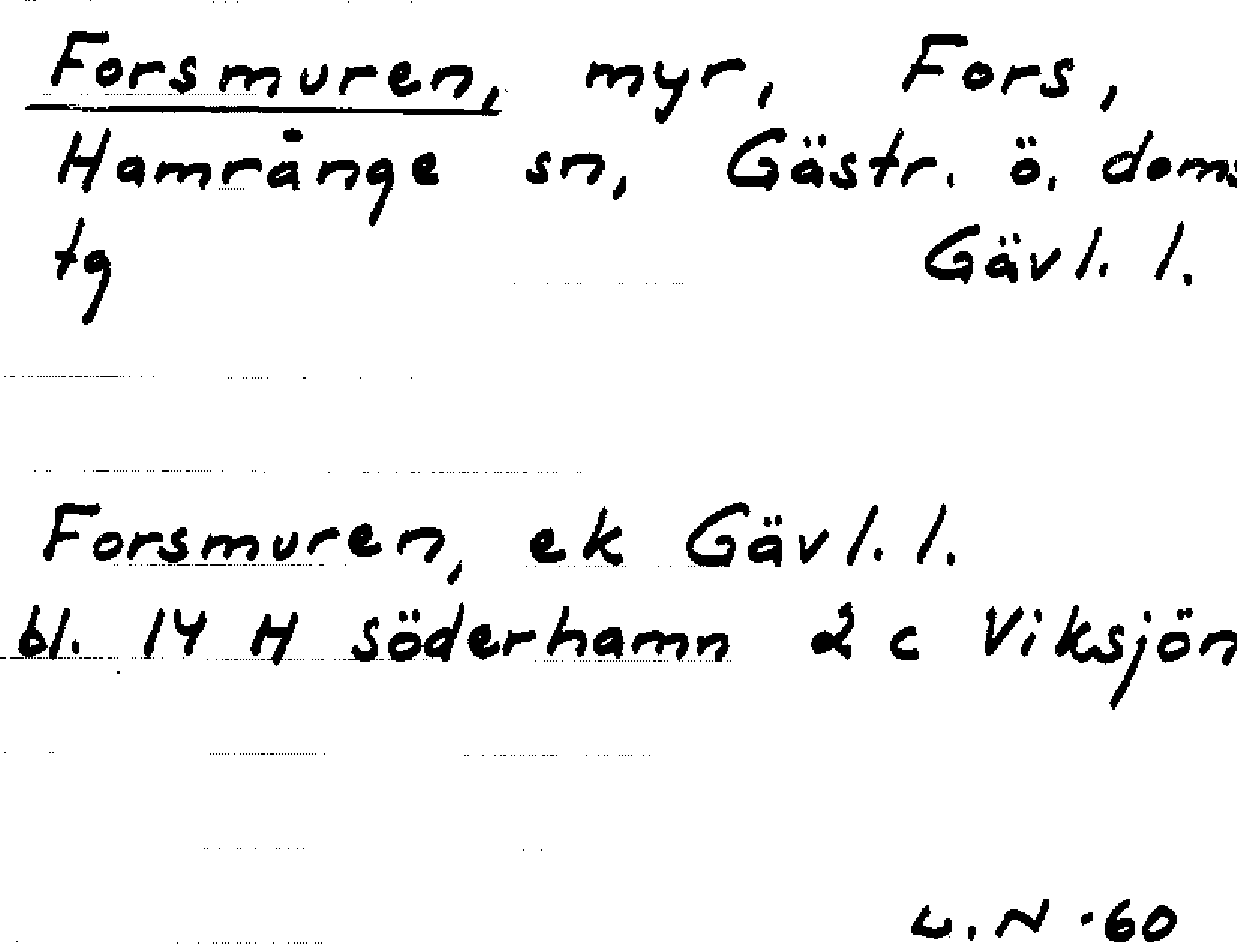 Forsmuren, myr, Fors,
Hamrånge sn, Gästr. ö. doms
tg Gävl. l.
Forsmuren, ek Gävl. l.
bl. 14 H söderhamn 2 c Viksjön
L. N -60